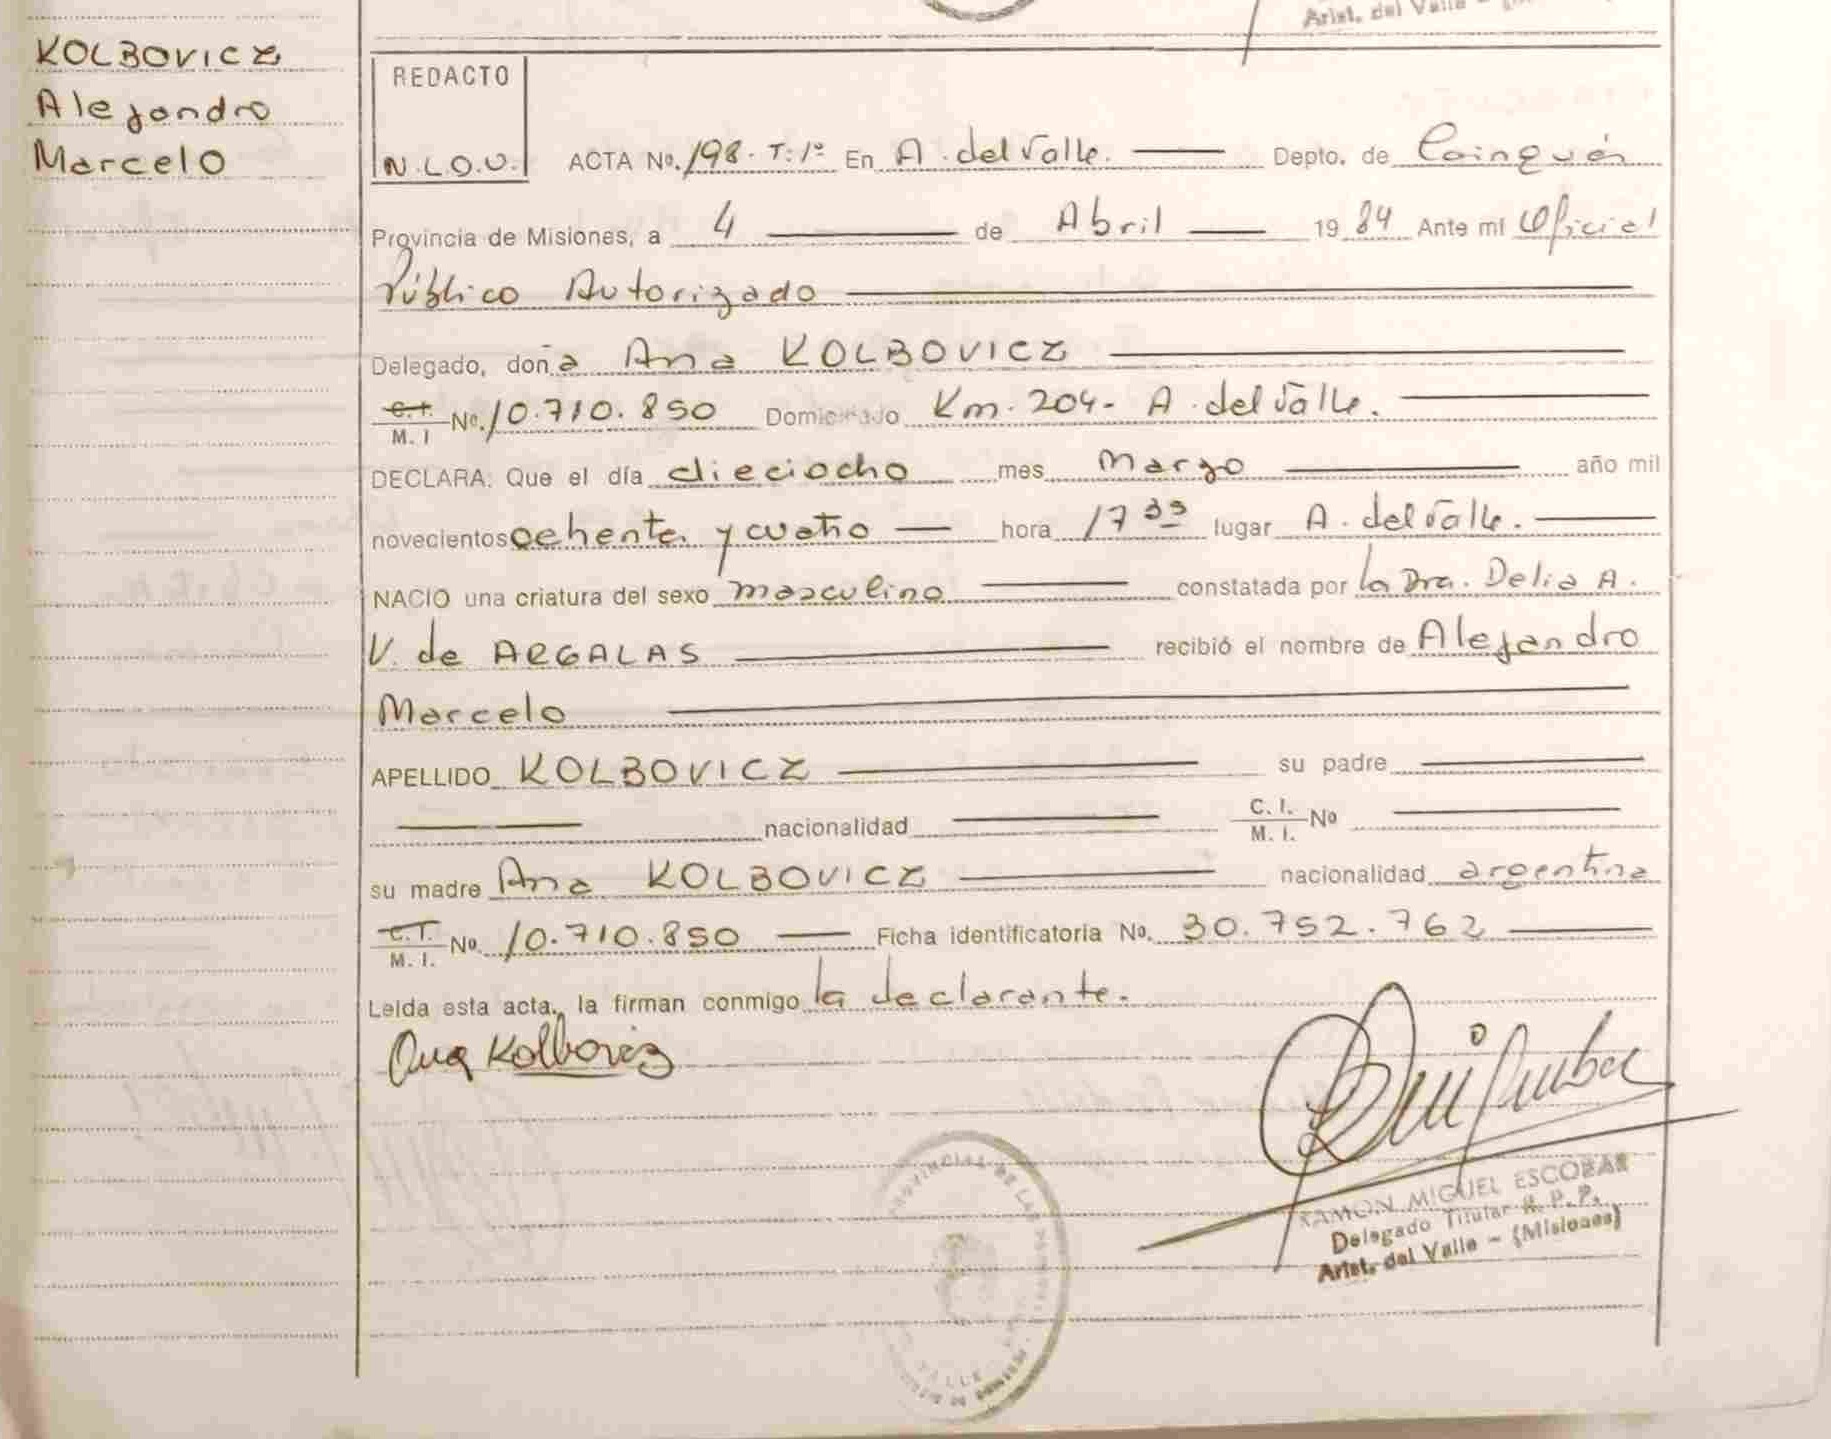 Arist. del Valle
KOLBOVICZ
Alejandro
Marcelo
REDACTO
N.L.O.U.
ACTA No. 198. T:1º En A. del Valle. Depto. de Cainguás
Provincia de Misiones, a 4 de Abril 1984 Ante mí Oficial
Público Autorizado
Delegado, doña Ana KOLBOVICZ
C.I. M. I No. 10.710.850 Domiciliado Km. 204- A. del Valle.
DECLARA: Que el día dieciocho mes marzo año mil
novecientos ochenta y cuatro hora 17 35 lugar A. del Valle.
NACIO una criatura del sexo masculino constatada por la Dra. Delia A.
V. de ARGALAS recibió el nombre de Alejandro
Marcelo
APELLIDO KOLBOVICZ su padre
nacionalidad C. I. M. I. Nº
su madre Ana KOLBOVICZ nacionalidad argentina
C.I. M. I. No. 10.710.850 Ficha identificatoria No. 30.752.762
Leída esta acta, la firman conmigo la declarante.
Ana Kolbovicz
RAMON MIGUEL ESCOBAR
Delegado Titular R. P. P.
Arist. del Valle - (Misiones)